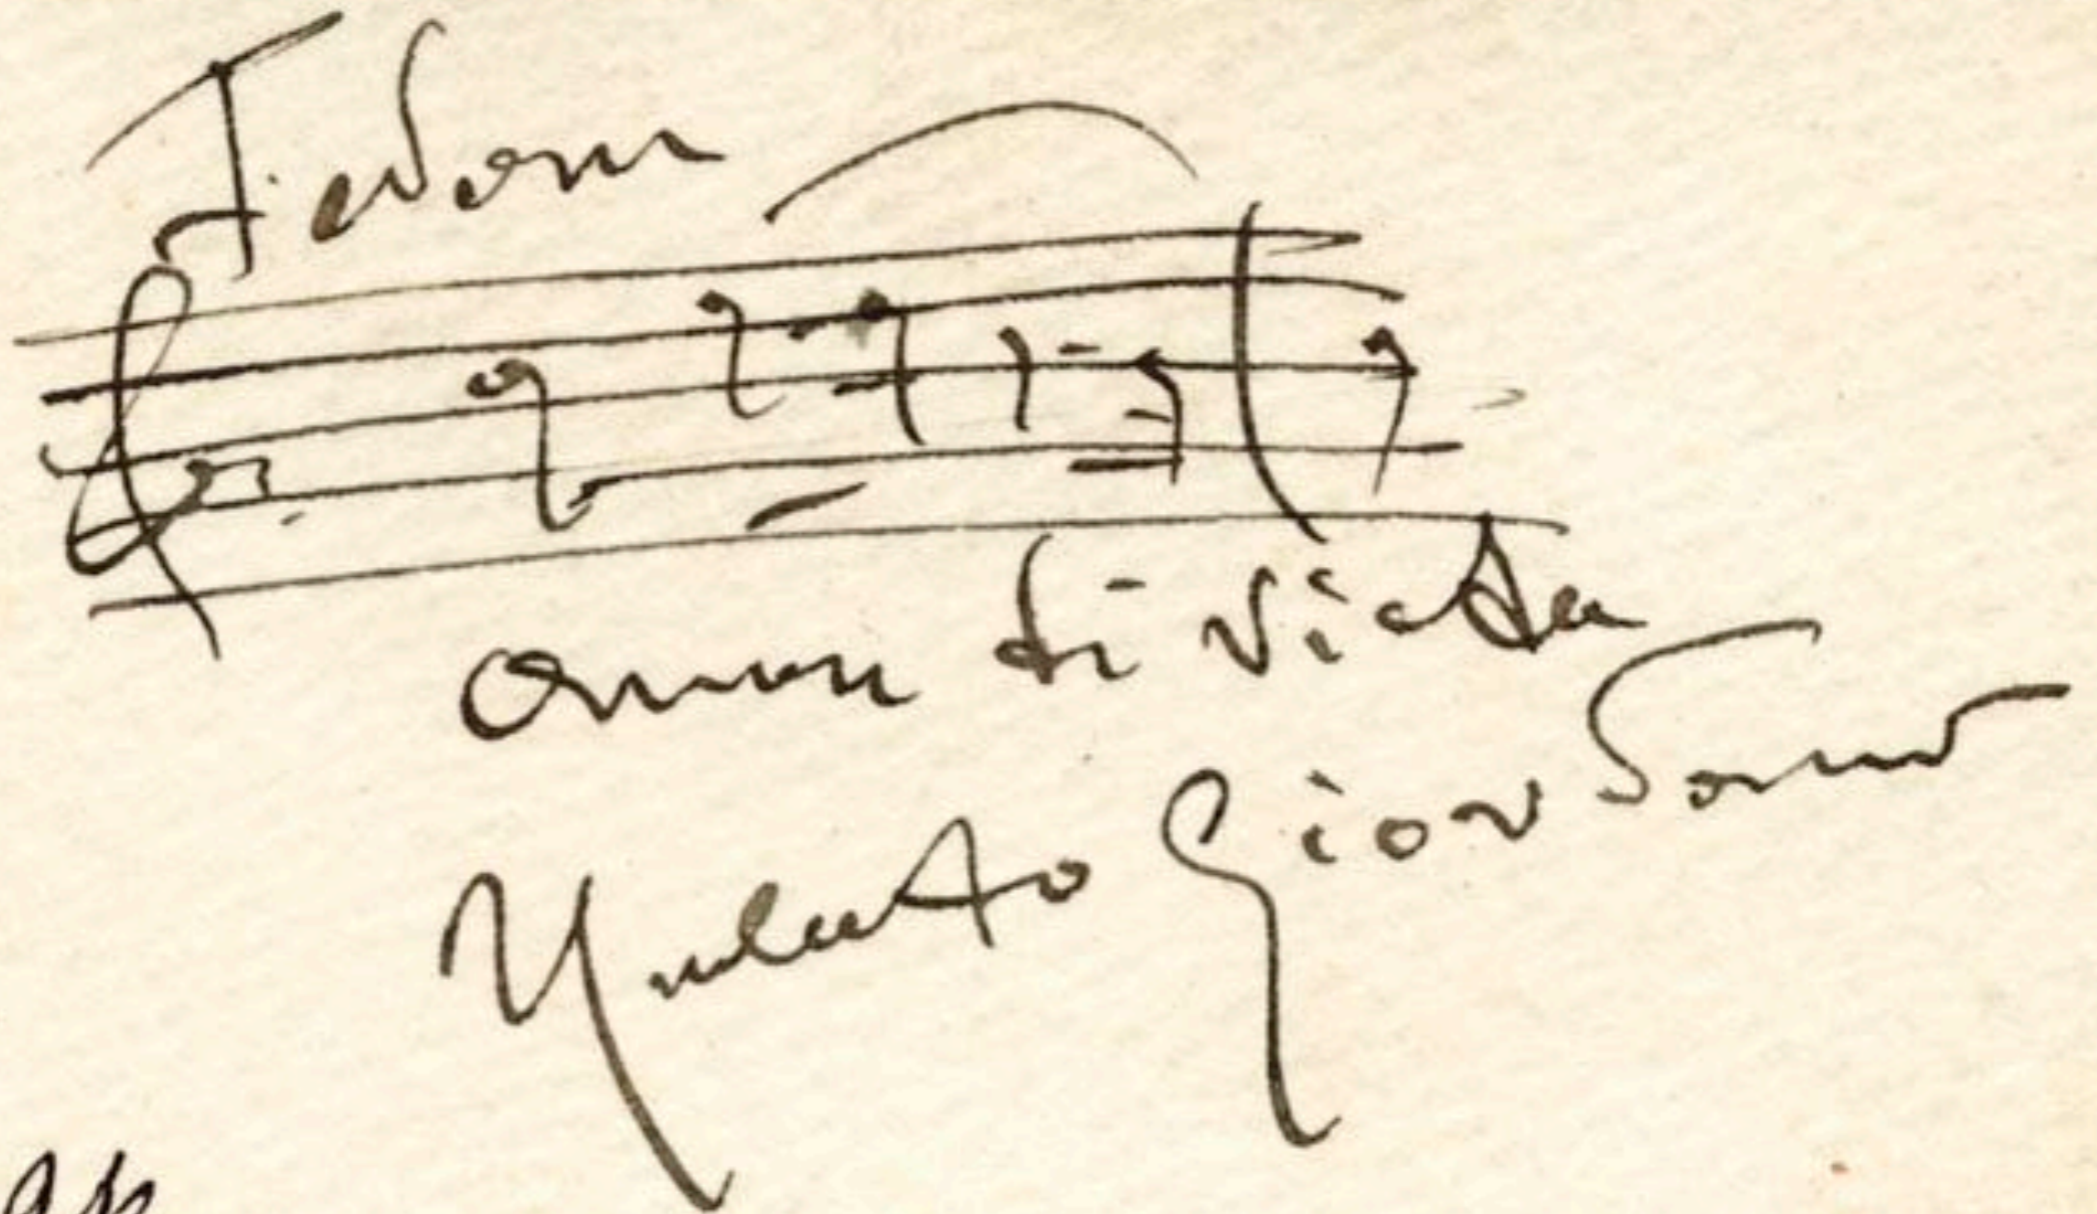 Fedora
amor ti vieta
Umberto Giordano